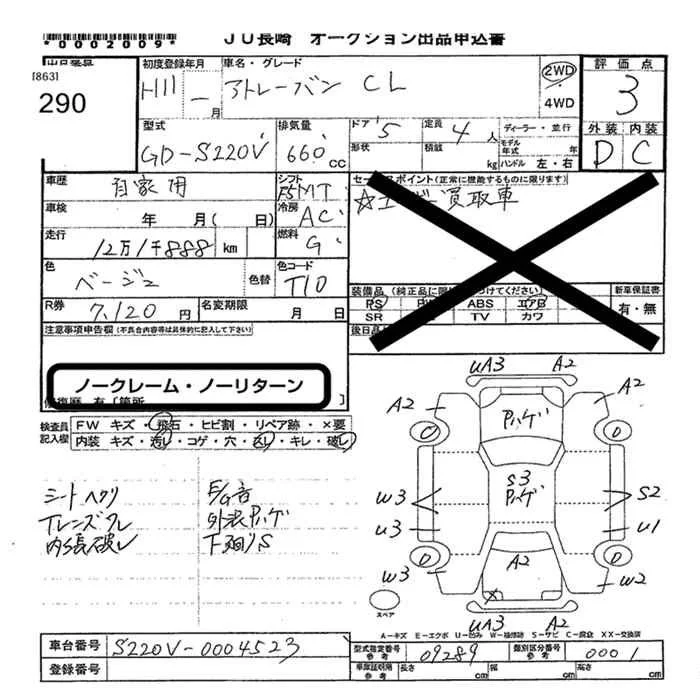 *0002009*
JU長崎 オークション出品申込書
出品番号
[863]
290
初度登録年月
H11 ー 月
車名・グレード
アトレーバン CL
2WD
4WD
評価点
3
外装 内装
D C
型式
GD-S220V
排気量
660 cc
ドア 5
形状
定員 4 人
積載 kg
ディーラー・並行
モデル年式 年
ハンドル 左・右
車歴
自家用
シフト
F5MT
セールスポイント(正常に機能するものに限ります)
買取車
車検
年 月( 日)
冷房
AC
走行
12万1千888 km
燃料
G
色
ベージュ
色替
色コード
T10
装備品(純正品に限 つけてください)
PS ABS エアB
SR TV カワ
新車保証書
有・無
R券
7,120 円
名変期限
月 日
後日品
注意事項申告欄(不具合内容等は具体的に記入して下さい)
ノークレーム・ノーリターン
修復歴 有〔箇所 〕
検査員記入欄
FW キズ・飛石・ヒビ割・リペア跡・×要
内装 キズ・汚レ・コゲ・穴・スレ・キレ・破レ
シートヘタリ
Tレンズワレ
内張破レ
E/G音
外装Pハゲ
下廻りS
UA3 A2
A2 A2
Pハゲ
D D
S3
Pハゲ
W3 S2
U3 U1
D D
A2
W3 W2
X
スペア
UA3 A2
A-キズ E-エクボ U-凹み W-補修跡 S-サビ C-腐食 XX-交換済
車台番号
S220V-0004523
登録番号
型式指定番号 参考
09289
類別区分番号 参考
0001
車庫証明用 参考
長さ cm
幅 cm
高さ cm